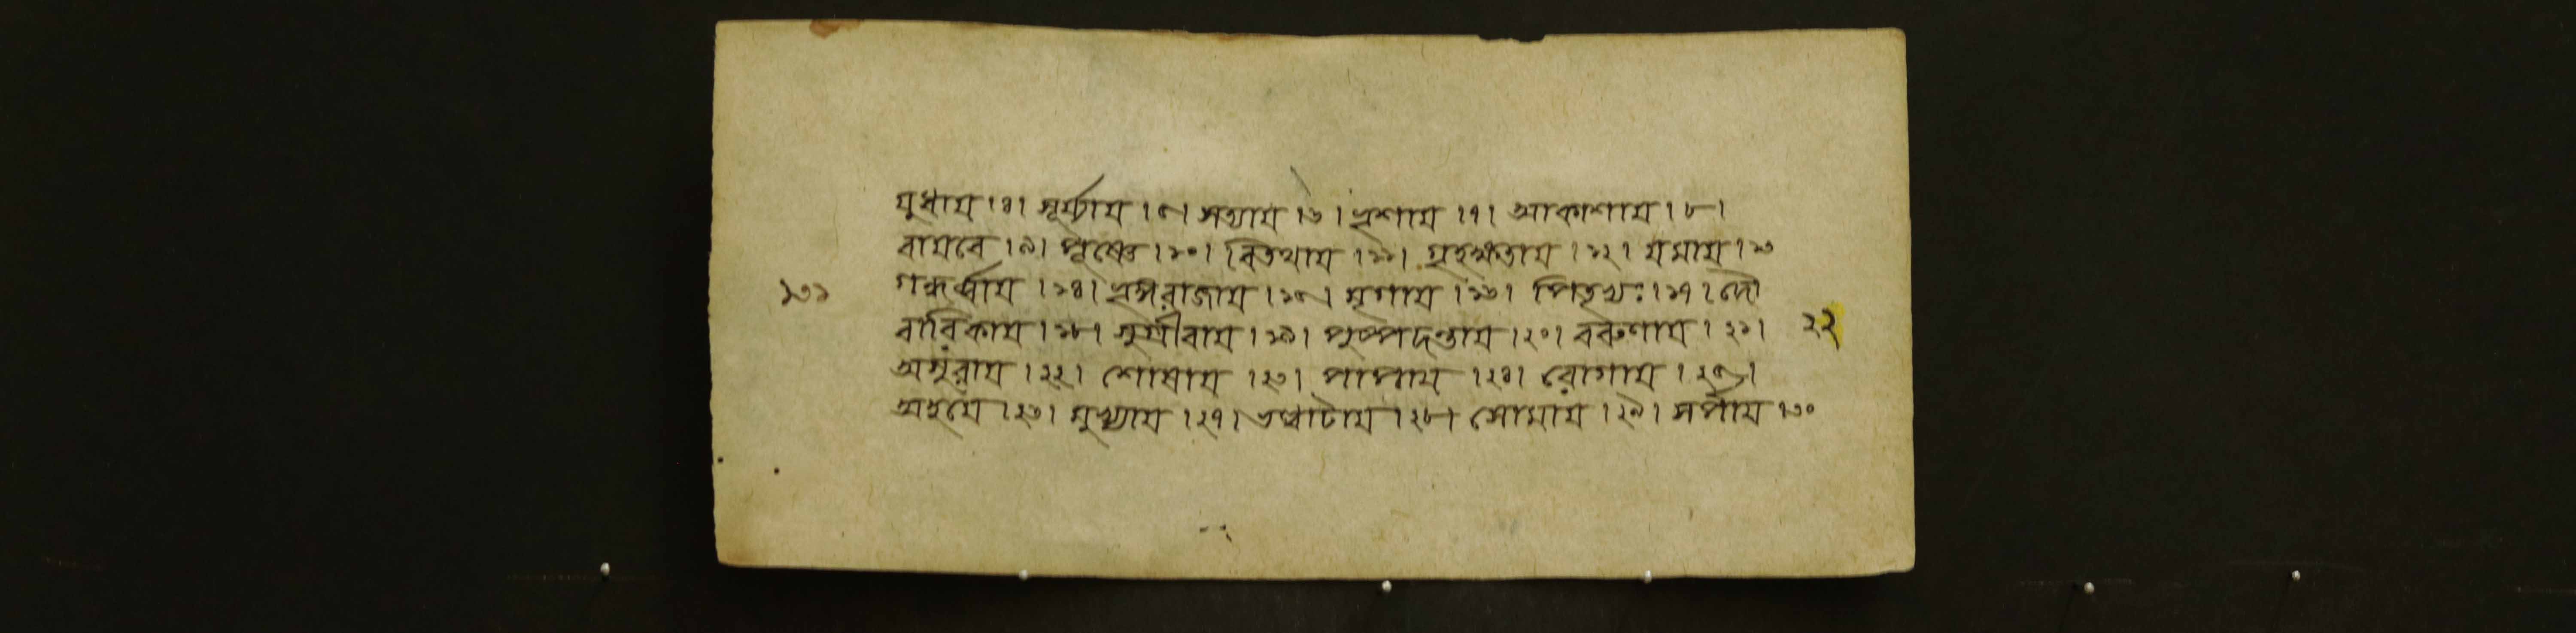 য়ুধায় ।৪। সূর্য্যায় ।৫। সত্যায় ।৬। ভৃশায় ।৭। আকাশায় ।৮।
বায়বে ।৯। পূষ্ণে ।১০। বিতথায় ।১১। গৃহক্ষতায় ।১২। যমায় ।১৩
গন্ধর্ব্বায় ।১৪। ভৃঙ্গরাজায় ।১৫। মৃগায় ।১৬। পিতৃভ্যঃ ।১৭। দৌ
১৩১
বারিকায় ।১৮। সুগ্রীবায় ।১৯। পুষ্পদন্তায় ।২০। বরুণায় ।২১।
२२
অসুরায় ।২২। শোষায় ।২৩। পাপায় ।২৪। রোগায় ।২৫।
অহয়ে ।২৬। মুখ্যায় ।২৭। ভল্লাটায় ।২৮। সোমায় ।২৯। সর্পায় ।৩০